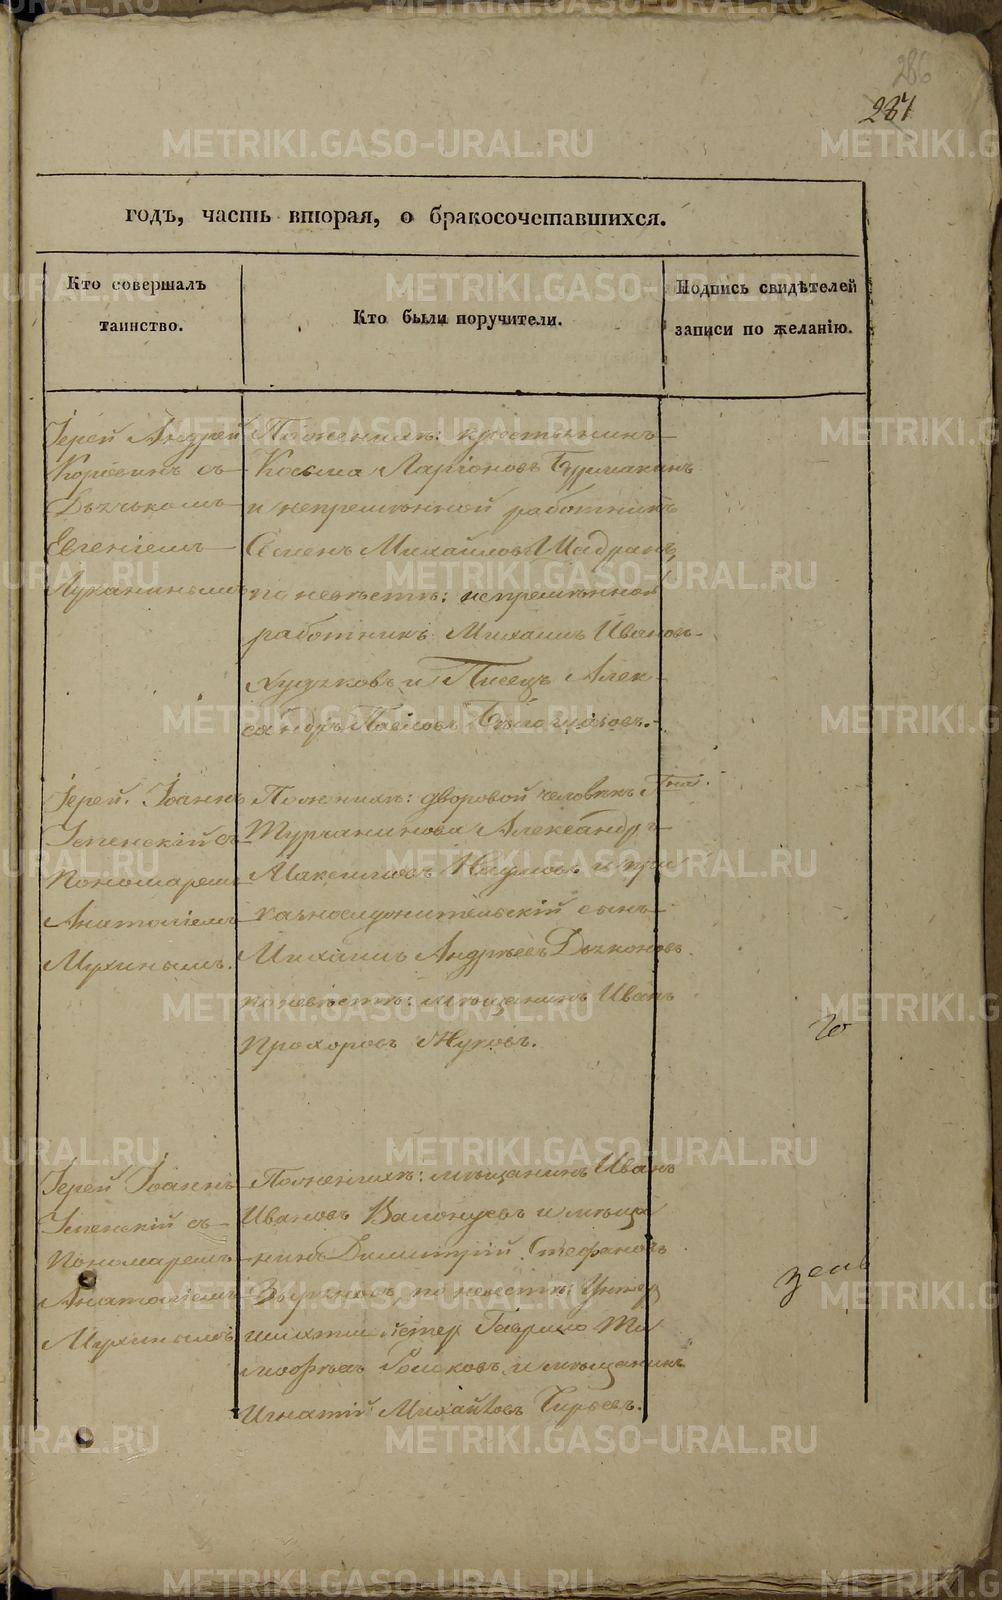 286
287
годъ, часть вторая, о бракосочетавшихся.
Кто совершалъ
таинство.
Кто были поручители.
Подпись свидѣтелей
записи по желанію.
Іерей Андрей
Коровинъ съ
Дьячкомъ
Евгеніемъ
Луканинымъ
По женихѣ: крестьянинъ
Косьма Ларіоновъ Бурмакинъ
и непремѣнной работникъ
Семенъ Михайловъ Шадринъ
по невѣстѣ: непремѣнной
работникъ Михаилъ Ивановъ
и Писецъ Алек
сандръ Павловъ
Іерей Іоаннъ
Успенскій съ
Пономаремъ
Анатоліемъ
Мухинымъ.
По женихѣ: дворовой человѣкъ Гна
Турчанинова Александръ
Максимовъ Наумовъ и при
казнослужительскій сынъ
Михаилъ Андреевъ Дьяконовъ
по невѣстѣ: мѣщанинъ Иванъ
Прохоровъ Жуковъ.
го
Іерей Іоаннъ
Успенскій съ
Пономаремъ
Анатоліемъ
Мухинымъ
По женихѣ: мѣщанинъ Иванъ
Ивановъ и мѣща
нинъ Димитрій Стефановъ
по невестѣ: Унтер
шихтмейстер Гаврило Ти
мофѣевъ и мѣщанинъ
Игнатій Михайловъ
METRIKI.GASO-URAL.RU